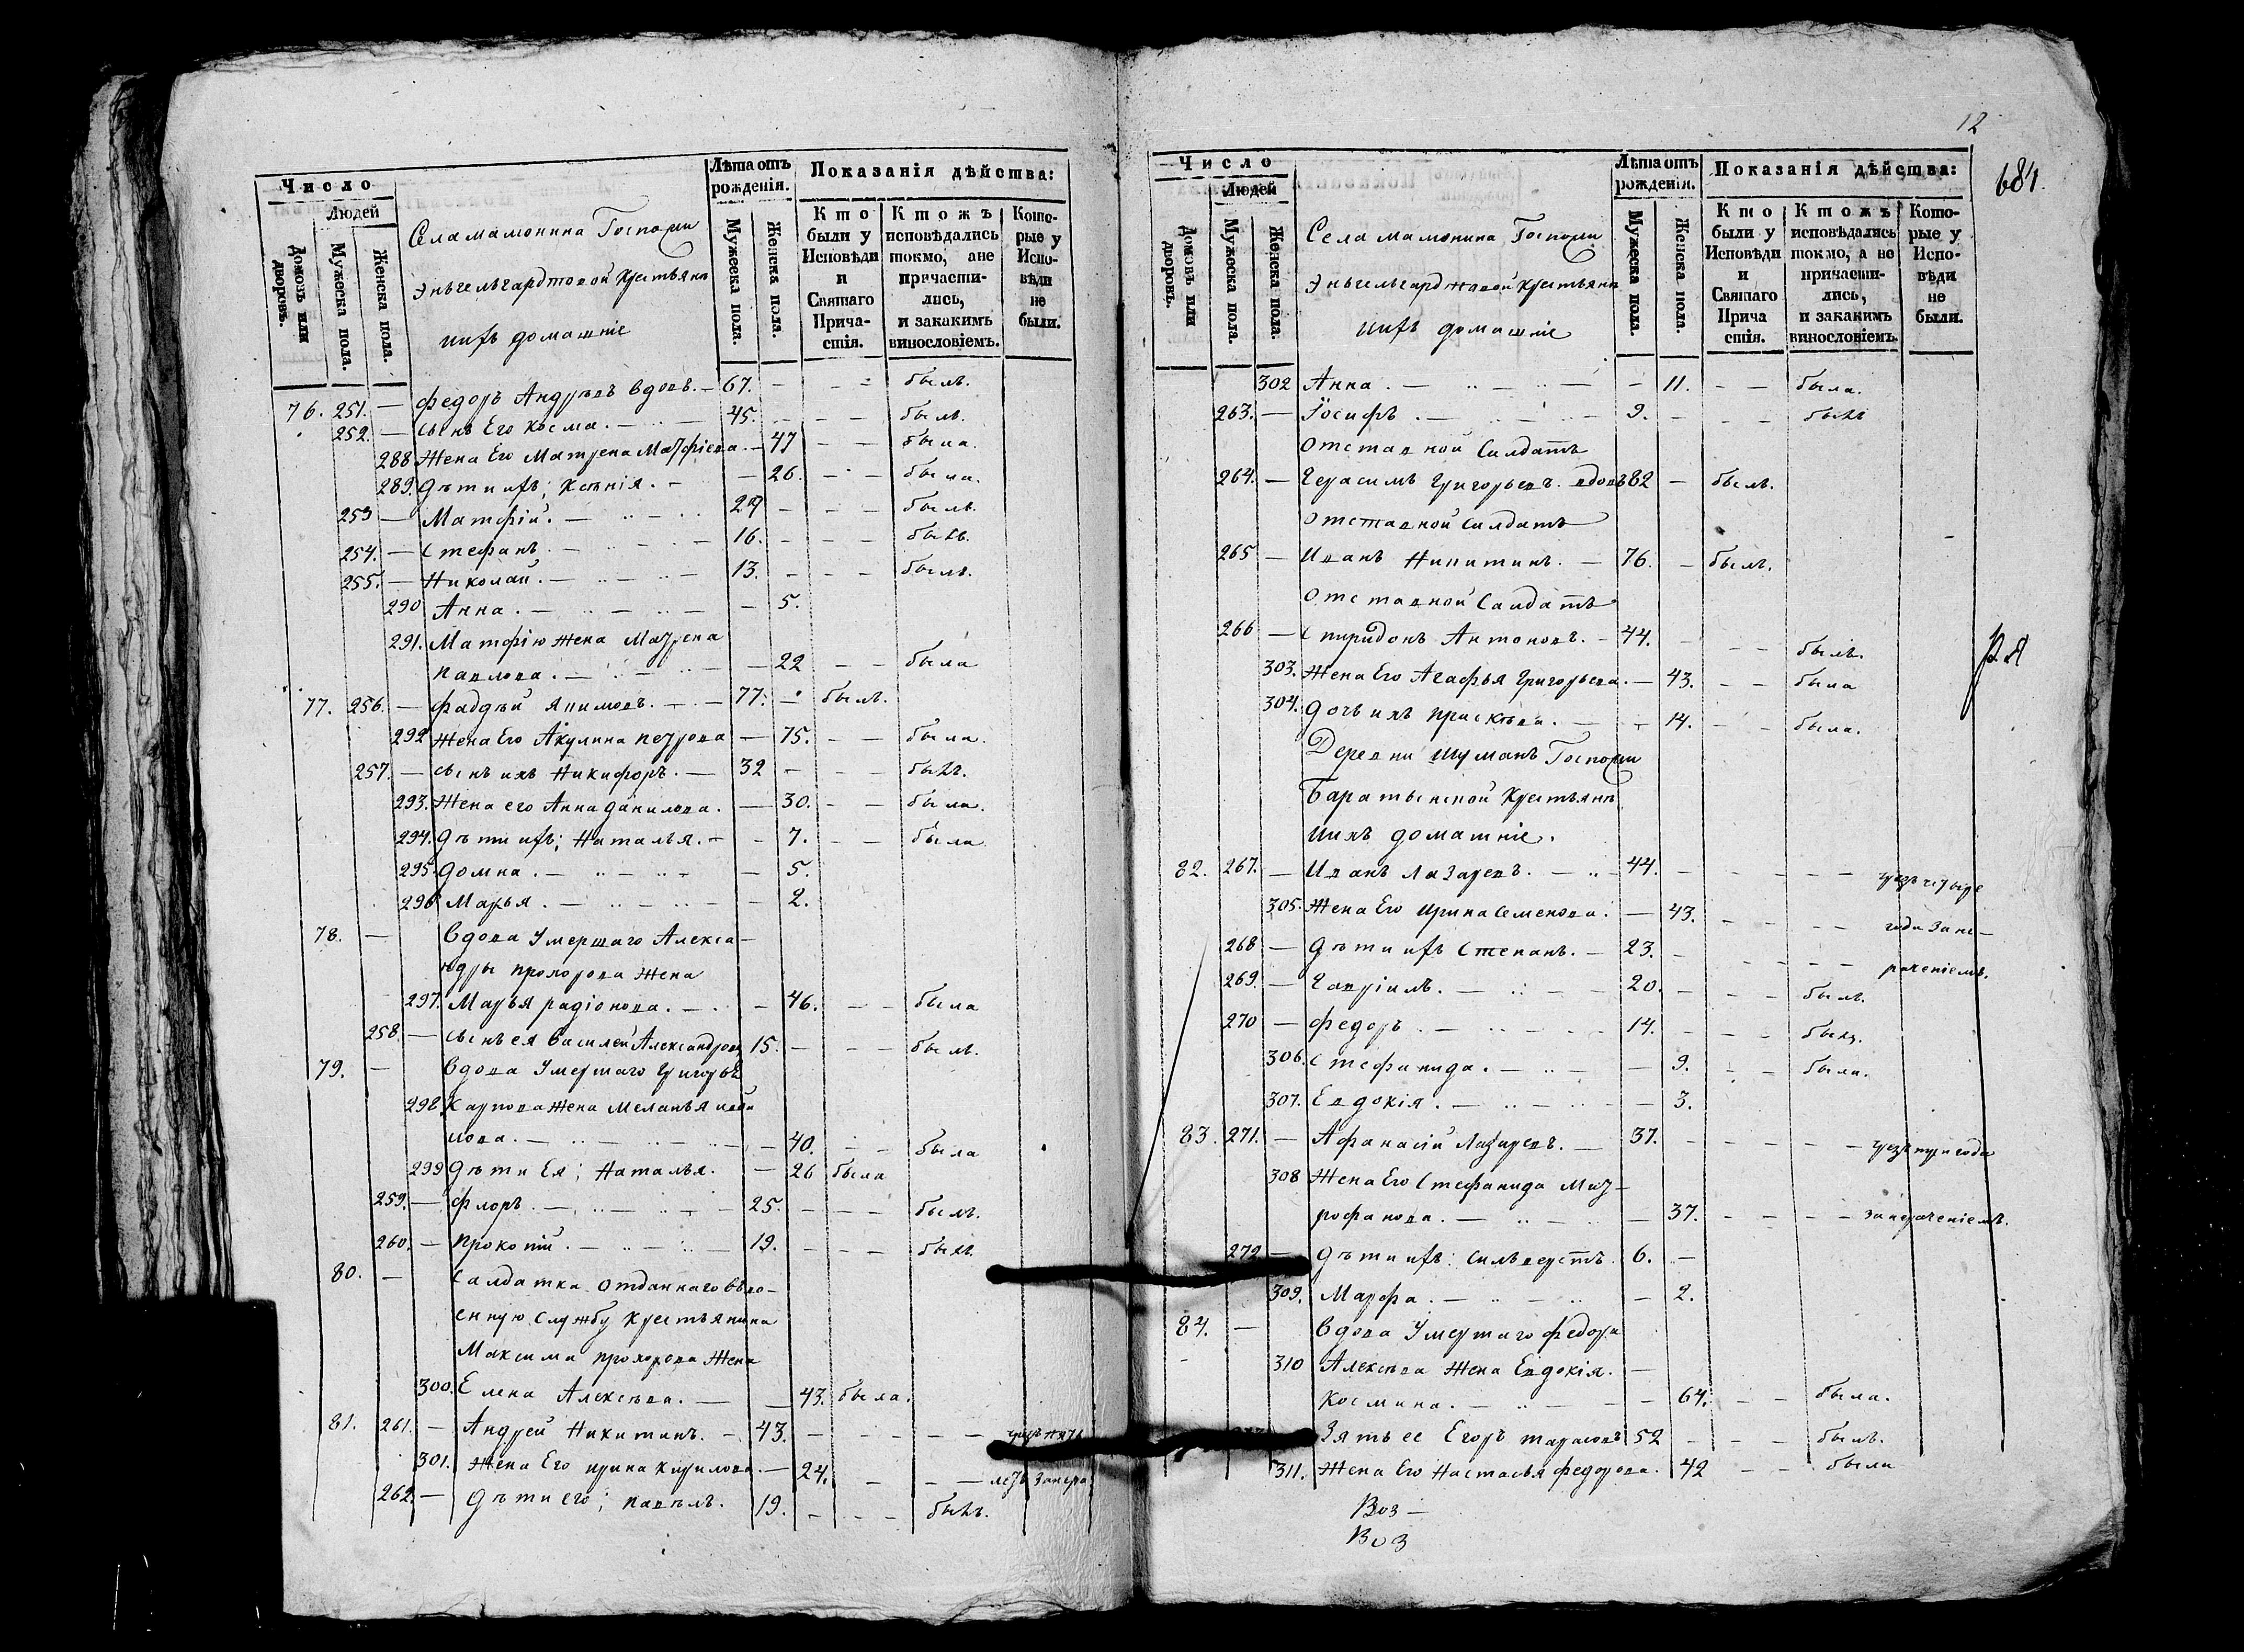 Число
Людей
Домовъ или дворовъ.
Мужеска пола.
Женска пола.
Села мамонина Госпожи
Энъгельгардтовой Крестьяне
ихъ домашніе
Лѣта отъ рожденія.
Мужеска пола.
Женска пола.
Показанія дѣйства:
Кто были у Исповѣди и Святаго Причастія.
Ктожъ исповѣдались токмо, а не причастились, и закакимъ винословіемъ.
Которые у Исповѣди не были.
76. 251. — Федоръ Андрѣевъ вдовъ. — 67. — — — былъ.
252. — сынъ Его Косма. — 45. — — — былъ.
288 Жена Его Матрена Матфіева — 47 — — была.
289. Дѣти ихъ; Ксѣнія. — — 26. — — была.
253 — Матфій. — 29 — — — былъ.
254. — Стефанъ. — 16. — — — былъ.
255. — Николай. — 13. — — — былъ.
290 Анна. — — 5.
291. Матфію жена Матрена
Павлова. — — 22 — — была
77. 256. — Фаддѣй Якимовъ. — 77. — былъ.
292 Жена Его Акулина Петрова — 75. — — была.
257. — сынъ ихъ Никифоръ. — 32 — — — былъ.
293. Жена его Анна Данилова. — 30. — — была.
294. Дѣти ихъ; Наталья. — — 7. — — была
295. Домна. — — 5.
296 Марья. — — 2.
78. — Вдова Умершаго Алекса—
ндры Прохорова Жена
297. Марья радіонова. — — 46. — — была
258. — сынъ ея Василей Александровъ 15. — — — былъ.
79. — Вдова Умершаго Григорья
298. Карпова Жена Меланья
лова. — — 40. — — была
299 Дѣти Ея; Наталья. — 26 была
259. — Флоръ. — 25. — — — былъ.
260. — Прокопій. — 19. — — — былъ
80. — Салдатка отданнаго въ во—
енную Службу Крестьянина
Максима Прохорова Жена
300. Елена Алексѣева. — — 43. была.
81. 261. — Андрей Никитинъ. — 43. — — — — —
301. Жена Его Ирина Кирилова. — 24. — — —
262. — Дѣти его; Павелъ. 19. — — — былъ.
12
684.
Число
Людей
Домовъ или дворовъ.
Мужеска пола.
Женска пола.
Села мамонина Госпожи
Энъгельгардтовой Крестьяне
ихъ домашніе
Лѣта отъ рожденія.
Мужеска пола.
Женска пола.
Показанія дѣйства:
Кто были у Исповѣди и Святаго Прича стія.
Ктожъ исповѣдались токмо, а не причастились, и закакимъ винословіемъ.
Которые у Исповѣди не были.
302 Анна. — — 11. — — была.
263. — Іосифъ. — 9. — — — былъ
отставной Салдатъ
264. — Герасимъ Григорьевъ. вдовъ 82 — былъ.
отставной салдатъ
265 — Иванъ Никитинъ. — 76. — былъ.
отставной Салдатъ
266 — Спиридонъ Антоновъ. — 44. — — — былъ.
303. Жена Его Агафья Григорьева. — 43. — — была
304. Дочь ихъ Прасковья. — — 14. — — была.
Деревни Шуманъ Госпожи
Баратынской Крестьяне
ихъ домашніе.
82. 267. — Иванъ Лазаревъ. — 44. — — — — — чрезъ четыре
305. Жена Его Ирина Семенова. — 43. — — — — года за не—
268 — Дѣти ихъ Степанъ. — 23. — — — — — раченіемъ.
269. — Гавріилъ. — 20. — — — былъ.
270 — Федоръ. — 14. — — — былъ.
306. Стефанида. — — 9. — — была.
307. Евдокія. — — 3.
83. 271. — Афанасій Лазаревъ. — 37. — — — — — чрезъ три года
308 Жена Его Стефанида Мит—
рофанова. — — 37. — — — — за нераченіемъ.
272 — Дѣти ихъ: Сильвестръ. 6. —
309. Марфа. — — 2.
84. — Вдова Умершаго Федора
310 Алексѣева Жена Евдокія. —
Космина. — — 64. — — была.
Зять ее Егоръ Тарасовъ 52 — — — былъ.
311. Жена Его Настасья Федорова. 42 — — была
Воз—
Воз